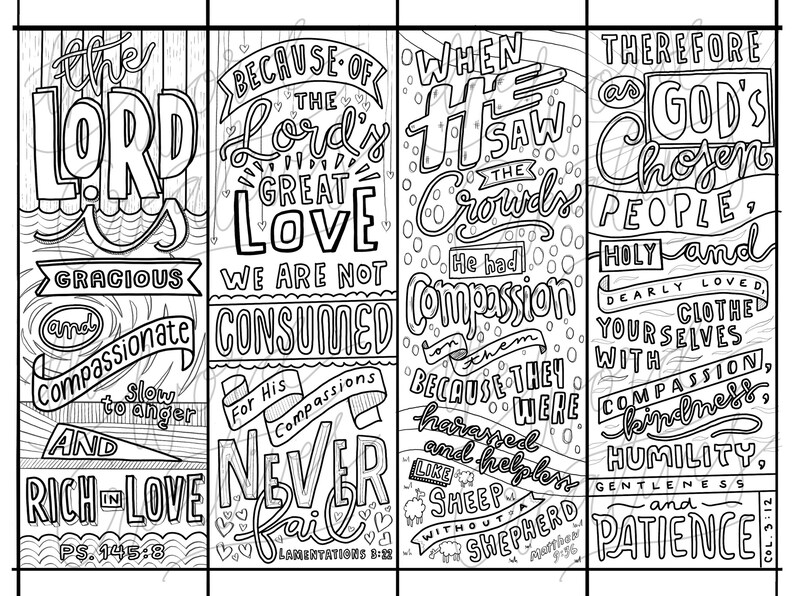 the
LORD
is
GRACIOUS
and
Compassionate
slow
to anger
AND
RICH IN LOVE
PS. 145:8
BECAUSE · OF
THE
Lord's
GREAT
LOVE
WE ARE NOT
CONSUMED
For His
Compassions
NEVER
fail
LAMENTATIONS 3:22
WHEN
HE
SAW
THE
Crowds
He had
Compassion
on them
BECAUSE THEY
WERE
harassed
and helpless
LIKE
SHEEP
WITHOUT A
SHEPHERD
Matthew
9:36
THEREFORE
as GOD'S
Chosen
PEOPLE,
HOLY and
DEARLY LOVED,
CLOTHE
YOURSELVES
WITH
COMPASSION,
kindness,
HUMILITY,
GENTLENESS
and
PATIENCE
COL. 3:12